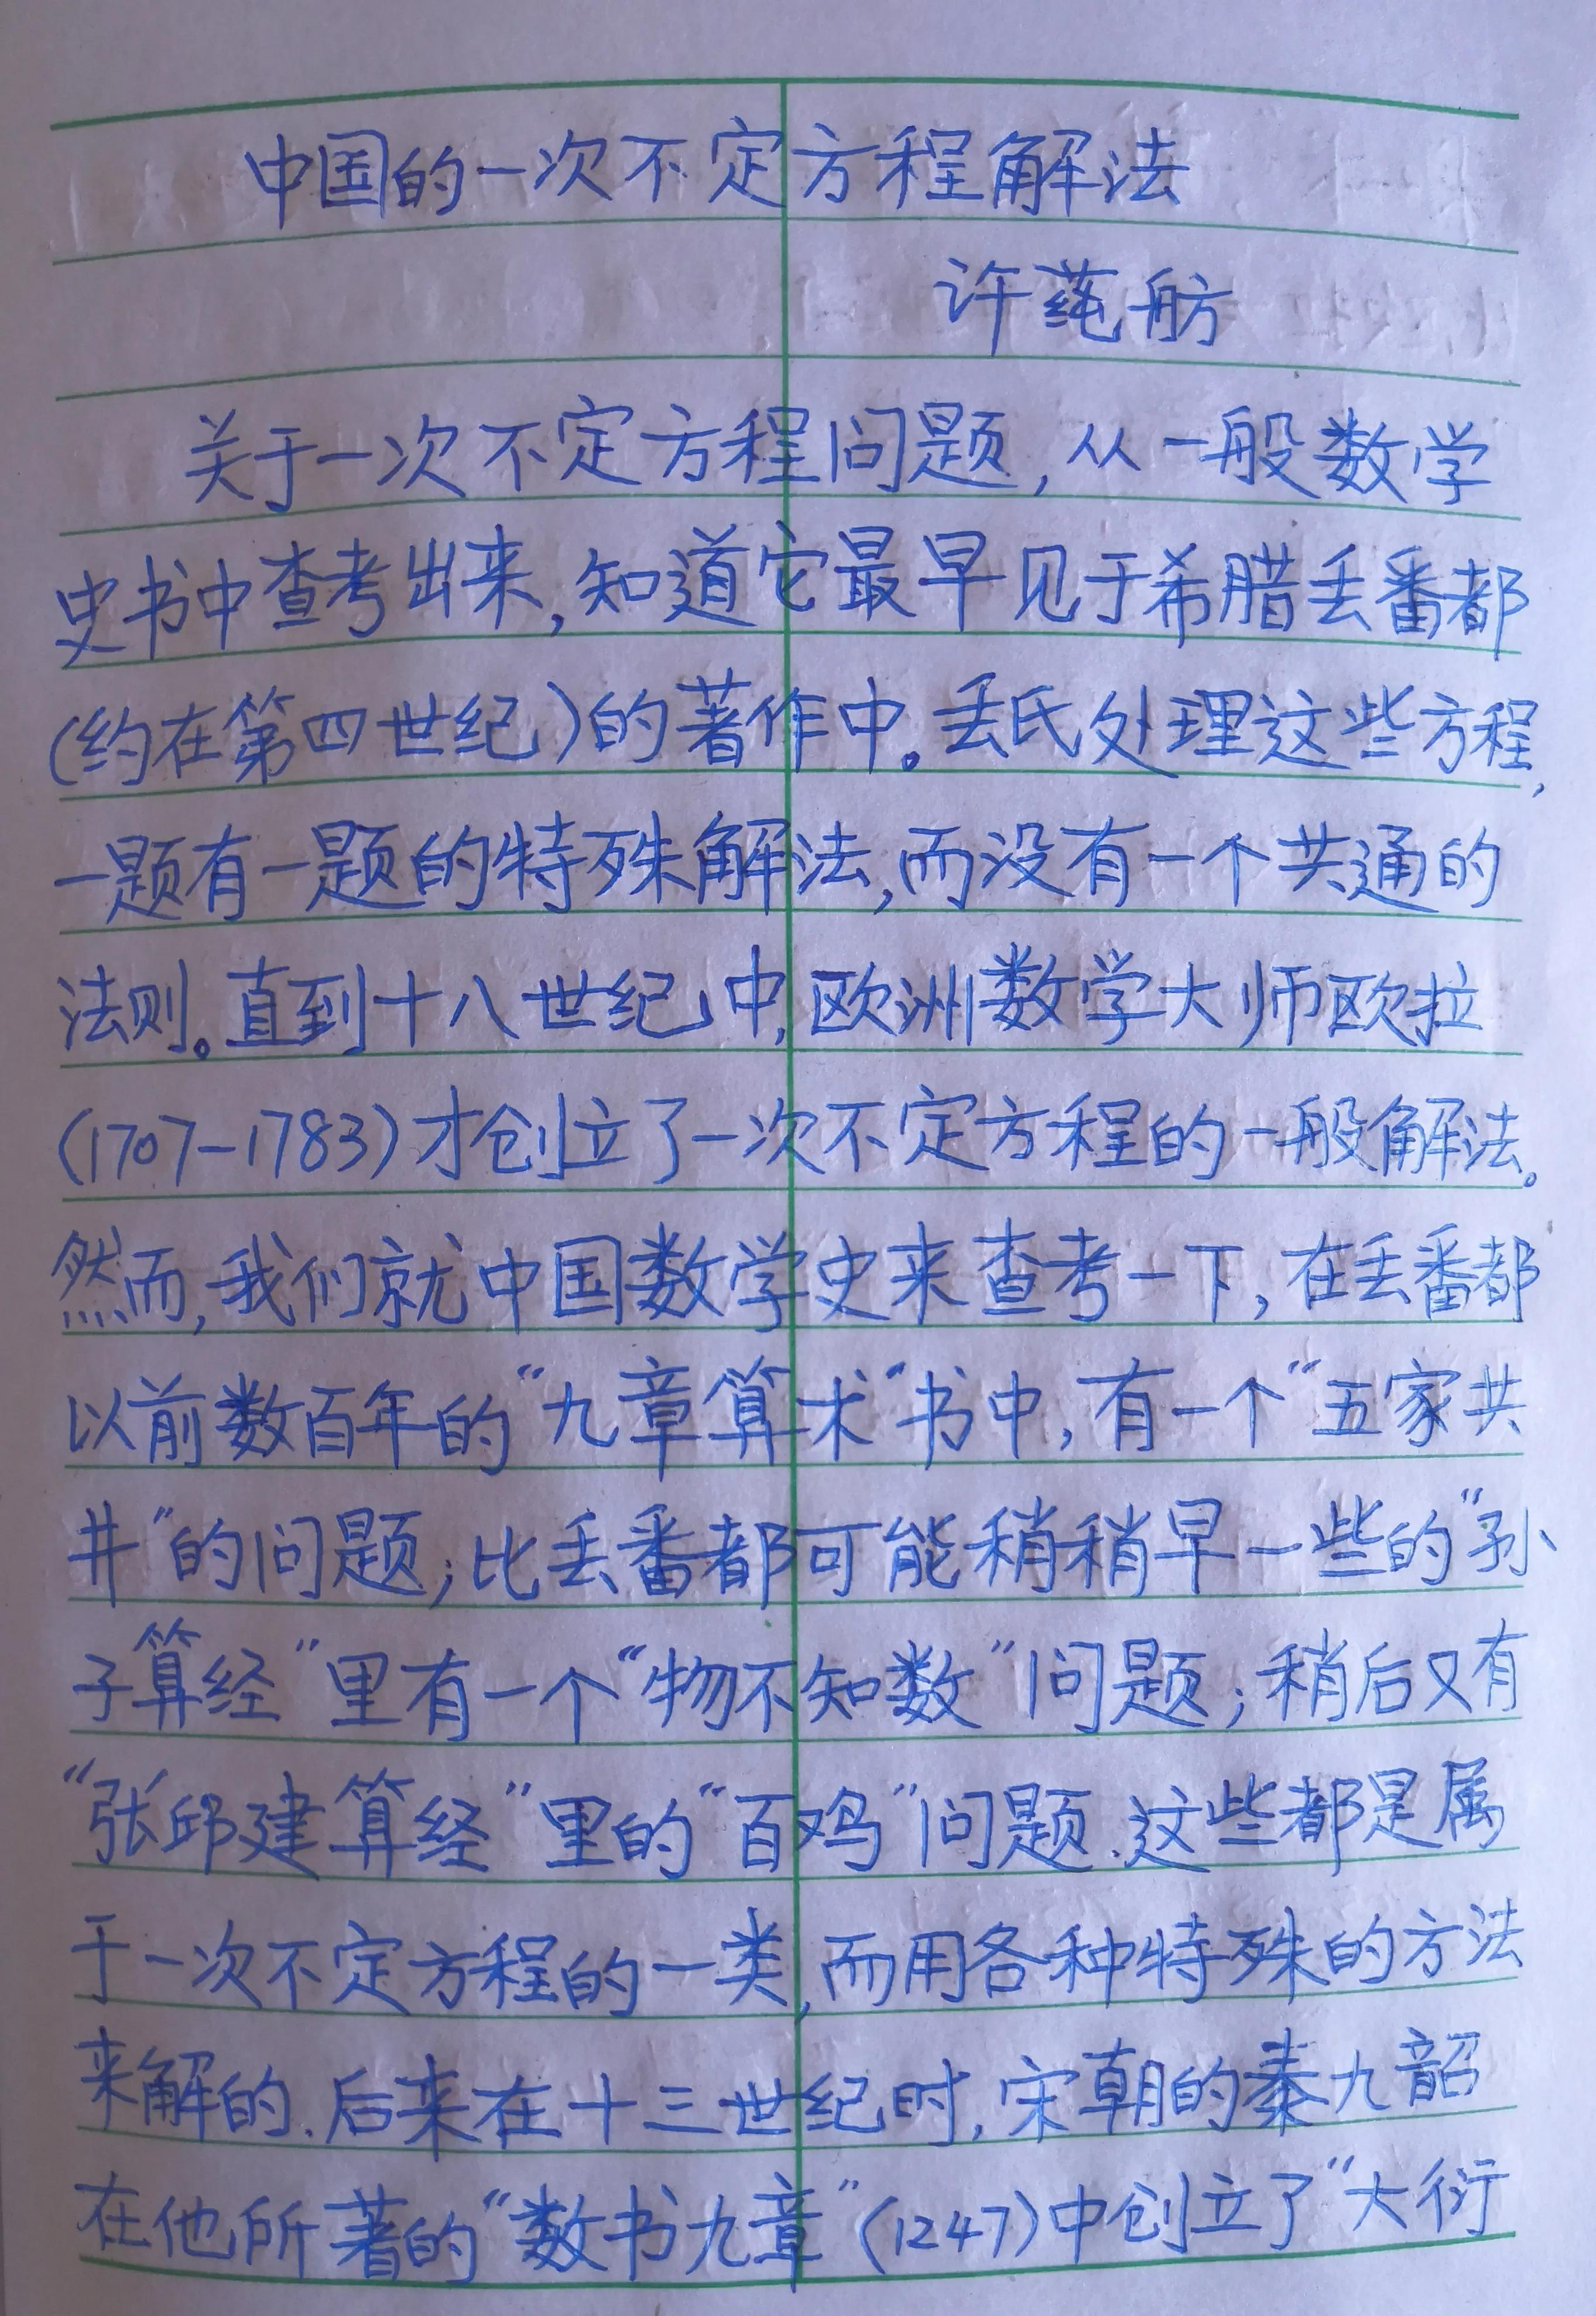 中国的一次不定方程解法
许莼舫
关于一次不定方程问题,从一般数学
史书中查考出来,知道它最早见于希腊丢番都
(约在第四世纪)的著作中。丢氏处理这些方程,
一题有一题的特殊解法,而没有一个共通的
法则。直到十八世纪中,欧洲数学大师欧拉
(1707-1783)才创立了一次不定方程的一般解法。
然而,我们就中国数学史来查考一下,在丢番都
以前数百年的“九章算术”书中,有一个“五家共
井”的问题;比丢番都可能稍稍早一些的“孙
子算经”里有一个“物不知数”问题;稍后又有
“张邱建算经”里的“百鸡”问题.这些都是属
于一次不定方程的一类,而用各种特殊的方法
来解的.后来在十三世纪时,宋朝的秦九韶
在他所著的“数书九章”(1247)中创立了“大衍